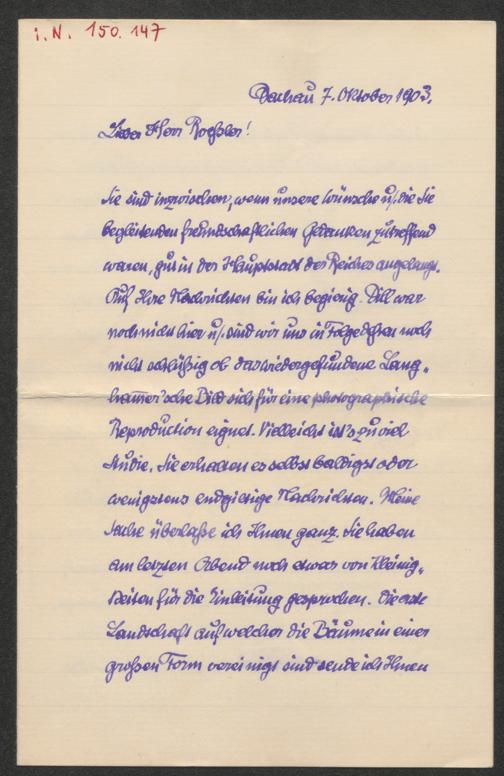 i. N. 150.147
Dachau 7. Oktober 1903.
Lieber Herr Roeßler!
Sie sind inzwischen, wenn unsere Wünsche u. die Sie
begleitenden freundschaftlichen Gedanken zutreffend
waren, gut in der Hauptstadt des Reiches angelangt.
Auf Ihre Nachrichten bin ich begierig. Dill war
noch nicht hier u. sind wir uns in Folge dessen noch
nicht schlüßig ob das wiedergefundene Lang„
hammer'sche Bild sich für eine photographische
Reproduction eignet. Vielleicht ist's zu viel
Studie. Sie erhalten es selbst baldigst oder
wenigstens endgiltige Nachrichten. Meine
Sache überlaße ich Ihnen ganz. Sie haben
am letzten Abend noch etwas von Kleinig„
keiten für die Einleitung gesprochen. Die erste
Landschaft auf welcher die Bäume in einer
großen Form vereinigt sind sende ich Ihnen